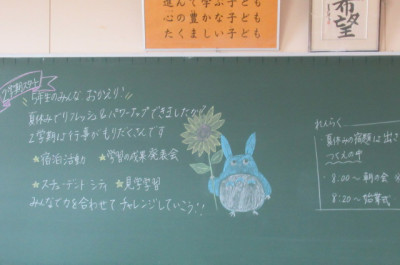 進んで学ぶ子ども
心の豊かな子ども
たくましい子ども
希望
2学期スタート
5年生のみんな、おかえり!!
夏休みでリフレッシュ&パワーアップできましたか?
2学期は行事がもりだくさんです
★宿泊活動 ★学習の成果発表会
★スチューデントシティ ★見学学習
みんなで力を合わせてチャレンジしていこう!!
れんらく
・夏休みの宿題は出さ
つくえの中
・8:00〜朝の会
・8:20〜始業式